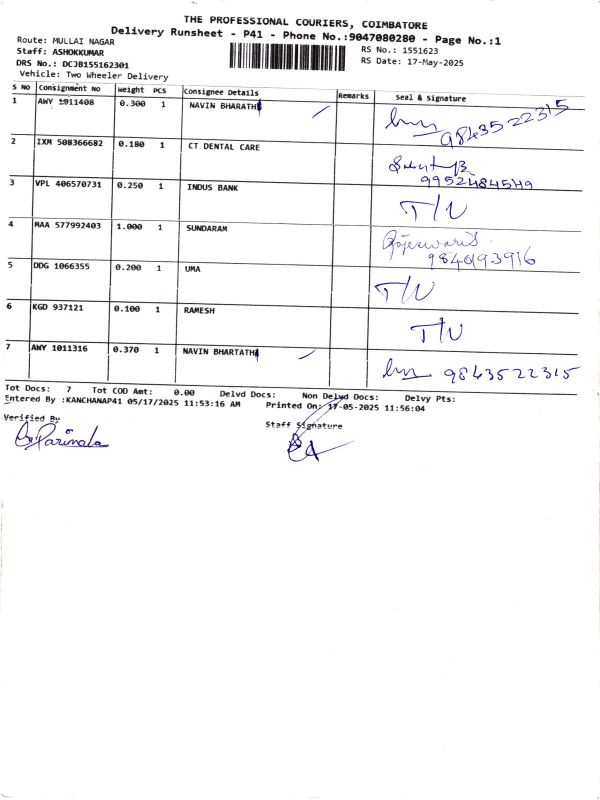 THE PROFESSIONAL COURIERS, COIMBATORE
Delivery Runsheet - P41 - Phone No.:9047080280 - Page No.:1
Route: MULLAI NAGAR
RS No.: 1551623
Staff: ASHOKKUMAR
RS Date: 17-May-2025
DRS No.: DCJB155162301
Vehicle: Two Wheeler Delivery
S No Consignment No Weight PCS Consignee Details Remarks Seal & Signature
1 AWY 1011408 0.300 1 NAVIN BHARATHI 9843522315
2 IXM 508366682 0.180 1 CT DENTAL CARE 9952484549
3 VPL 406570731 0.250 1 INDUS BANK T/N
4 MAA 577992403 1.000 1 SUNDARAM Rajeswari S. 9840193916
5 DDG 1066355 0.200 1 UMA T/N
6 KGD 937121 0.100 1 RAMESH T/N
7 AWY 1011316 0.370 1 NAVIN BHARTATHI 9843522315
Tot Docs: 7 Tot COD Amt: 0.00 Delvd Docs: Non Delvd Docs: Delvy Pts:
Entered By :KANCHANAP41 05/17/2025 11:53:16 AM Printed On: 17-05-2025 11:56:04
Verified By
Staff Signature
Parimala